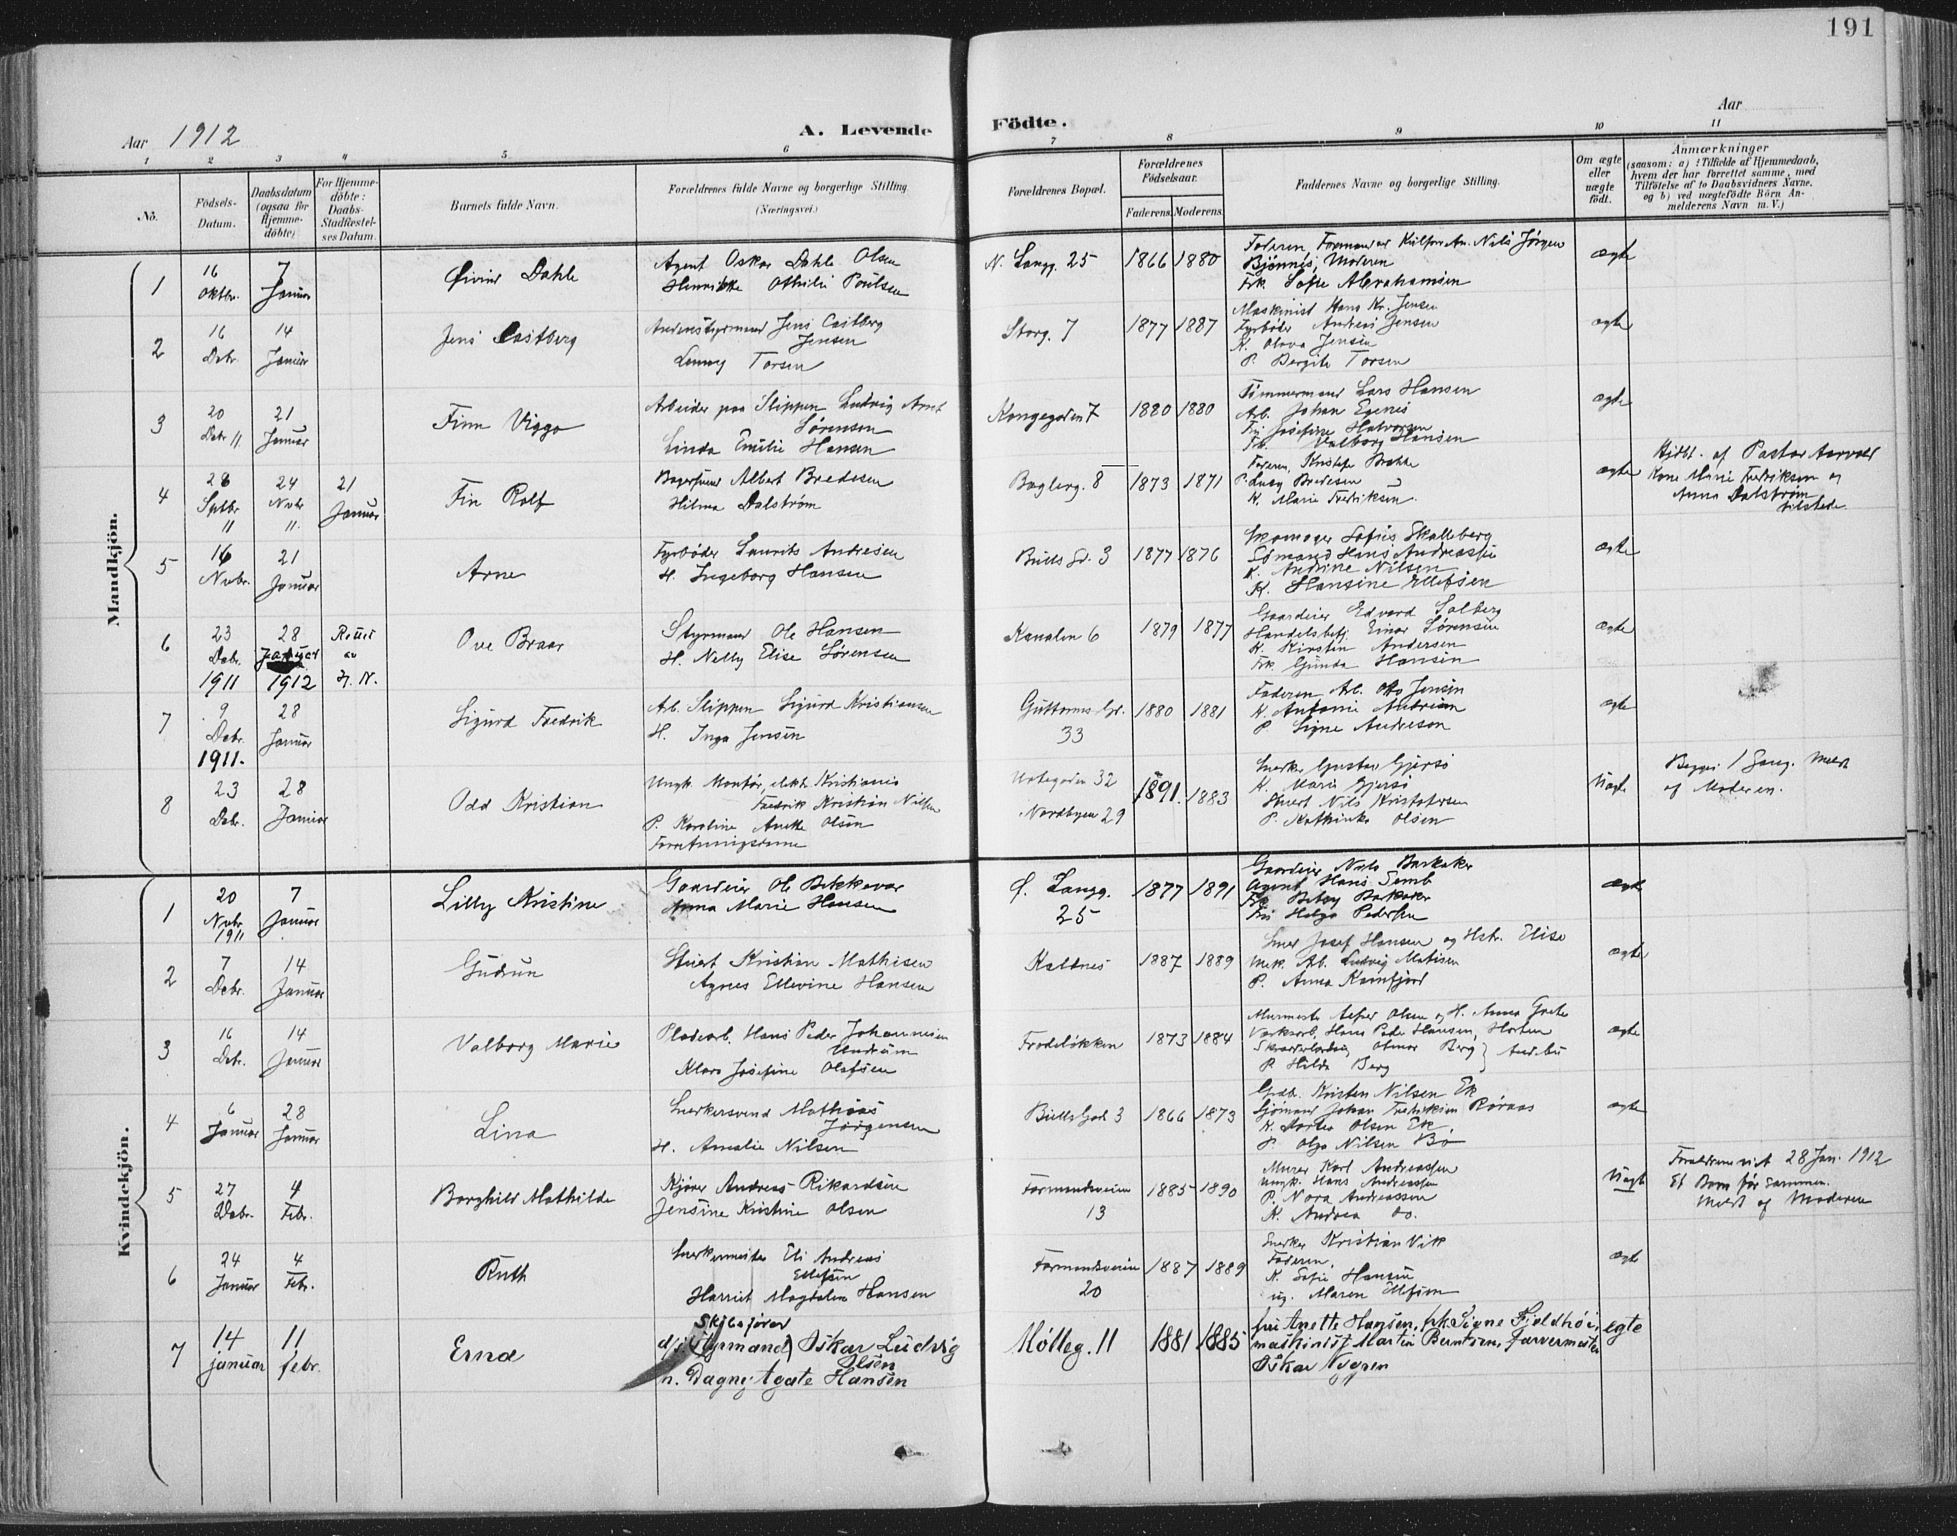 191
Aar 1912
A. Levende
Födte.
Aar
1 2 3 4 5 6 7 8 9 10 11
No.
Födsels-
Datum.
Daabsdatum
(ogsaa for
Hjemme-
döbte)
For Hjemme-
döbte:
Daabs-
Stadfæstel-
ses Datum.
Barnets fulde Navn.
Forældrenes fulde Navne og borgerlige Stilling.
(Næringsvei.)
Forældrenes Bopæl.
Forældrenes
Födselsaar.
Faderens. Moderens.
Faddernes Navne og borgerlige Stilling.
Om ægte
eller
uægte
födt.
Anmærkninger
(saasom: a) i Tilfælde af Hjemmedaab,
hvem der har forrettet samme, med
Tilföielse af to Daabsvidners Navne.
og b) ved uægtefödte Börn An-
melderens Navn m. V.)
Mandkjön.
1
16
Oktbr.
7
Januar
Øivind Dahle
Agent Oskar Dahle Olsen
Othilie Poulsen
N. Langg. 25
1866 1880
Nils Jörgen
Moderen
Frk Sofie Abrahamsen
ægte
2
16
Debr
14
Januar
Jens Castberg
Andenstyrmand Jens Castberg
Jensen
Torsen
Storg. 7
1877 1887
Maskinist Hans Kr. Jensen
Fyrböder Andreas Jensen
K. Olava Jensen
P. Bergite Torsen
ægte
3
20
Debr 11
21
Januar
Finn Viggo
Arbeider paa Slippen Ludvig Arnt
Sørensen
Linda Emilie Hansen
Kongegaden 7
1880 1880
Tömmermand Lars Hansen
Arb. Johan Egenes
Fru Josefine Halvorsen
Valborg Hansen
ægte
4
28
Septbr
11
24
Nvbr
11.
21
Januar
Fin Rolf
Albert Bredesen
Hilma Dalström
Baglerg. 8
1873 1871
Faderen, Kristofer Bakke
P. Lucy Bredesen
K. Marie Fredriksen.
ægte
Hjdbt. af Pastor Aarvold
Kone Marie Fredriksen og
Anna Dalström
tilstede
5
16
Nvbr.
21
Januar
Arne
Fyrbøder Laurits Andresen
H. Ingeborg Hansen
Bulls Gd. 3
1877 1876
Skomager Sofus Skalleberg
Sømand Hans Andreassen
K. Andrine Nilsen
K. Hansine Ellefsen
ægte
6
23
Debr.
1911
28
Januar
1912
Rettet
av
H. N.
Ove Braar
Styrmand Ole Hansen
H. Nelly Elise Sørensen
Kanalen 6
1879 1877
Gaardeier Edvard Solberg
Handelsbetj. Einar Sørensen
K. Kirsten Andersen
Frk Gunda Hansen
ægte
7
9
Debr.
1911.
28
Januar
Sigurd Fredrik
Arb. Slippen Sigurd Kristiansen
H. Inga Jensen
Guttorms Gr.
33
1880 1881
Faderen Arb. Otto Jensen
K. Antonie
P. Signe Andreson
ægte
8
23
Debr.
28
Januar
Odd Kristian
Ungk. Montør, elekt. Kristianis
Fredrik Kristian Nilsen
P. Karoline Anette Olsen
Forretningsdame
32
Nordbyen 29
1891. 1883
Snerker Gustav Gjersö
K. Marie Gjersö
Stuert Nils Kristofersen
P. Kathinka Olsen
Uægte
Begges 1 Gang. Meldt
af Moderen.
Kvindekjön.
1
20
Nvbr
1911
7
Januar
Lilly Kristine
Gaardeier Ole Bekkevar
Anna Marie Hansen
Ø. Langg.
25
1877 1891
Gaardeier Nils Barkaker
Agent Hans Semb
Frk Betsy Barkaker
Fru Helga Pedersen
ægte
2
7
Debr.
14
Januar
Gudrun
Stuert Kristian Mathisen
Agnes Ellevine Hansen
Kaldnes
1887 1889
Josef Hansen og Hstr. Elise
Ludvig Matisen
P. Anna Kamfjord
ægte
3
16
Debr.
14
Januar
Valborg Marie
Pladearb. Hans Peder Johannesen
Undrum
Klara Josefine Olafsen
Frodeløkken
1873 1884
Olsen og H. Anna Grete
Værksarb. Hans Peder Hansen, Horten
Olmar Berg } Andebu
P. Hilda Berg
ægte
4
6
Januar
28
Januar
Lina
Snerkersvend Mathias
Jørgensen
H. Amalie Nilsen
Bulls Gad. 3
1866 1873
Grdb. Kristen Nilsen Ek
Sjömand Johan Fredriksen Röraas
K. Olsen Ek,
P. Olga Nilsen Bø
ægte
5
27
Debr.
4
Febr.
Borghild Mathilde
Kjører Andreas Rikardsen
Jensine Kristine Olsen
Formandsveien
13
1885 1890
Murer Karl Andreassen
Ungk. Hans Andreassen
P. Nora Andreassen
K. Andrea do.
Uægt
Forældrene viet 28 Jan. 1912
Et Barn før sammen.
Meldt af Moderen
6
24
Januar
4
Febr.
Ruth
Snerkermester Eli Andreas
Ellefsen
Harriet Magdalena Hansen
Formandsveien
20
1887 1889
Snerker Kristian Vik
Faderen,
K. Sofie Hansen
ug. Maren Ellefsen
ægte
7
14
januar
11
febr.
Erna
Skibsfører
d/s (Styrmand) Oskar Ludvig
Olsen
h. Dagny Agate Hansen
Mølleg. 11
1881 1885
fru Anette Hansen, frk. Signe Fjeldhøi,
maskinist Martin Berntsen, farvermester
Oskar Nygren
egte